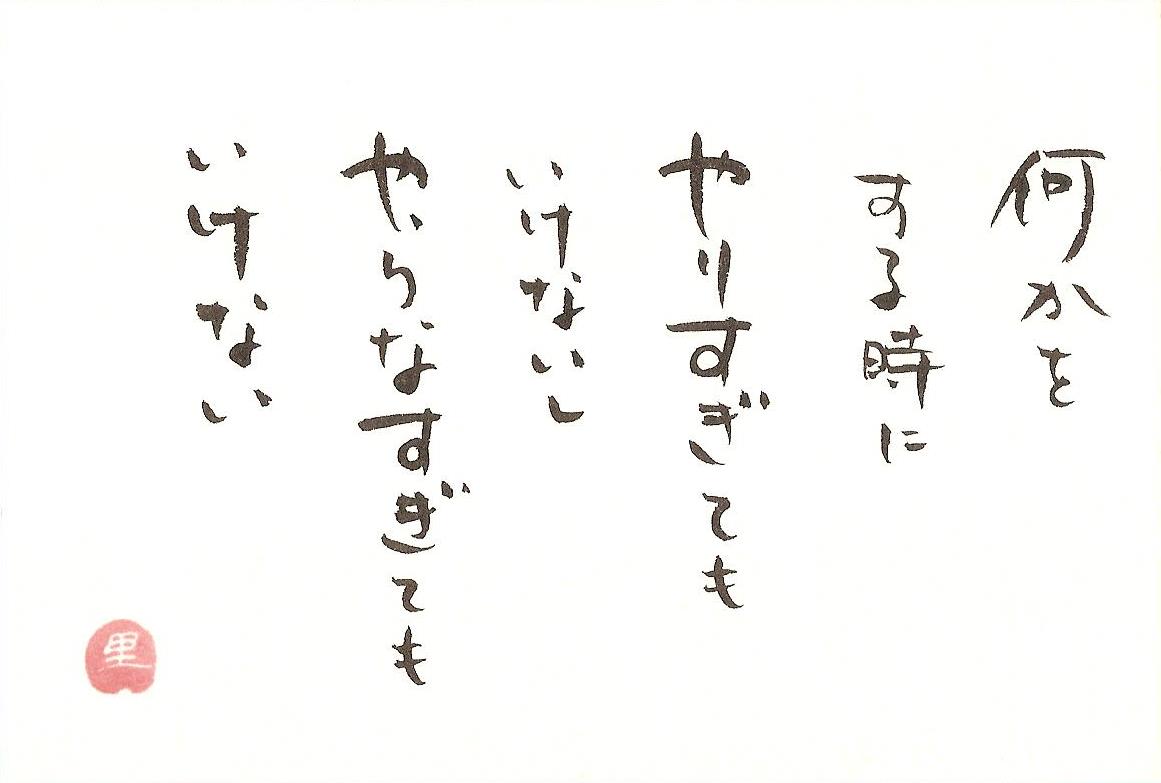 何かを
する時に
やりすぎても
いけないし
やらなすぎても
いけない
里